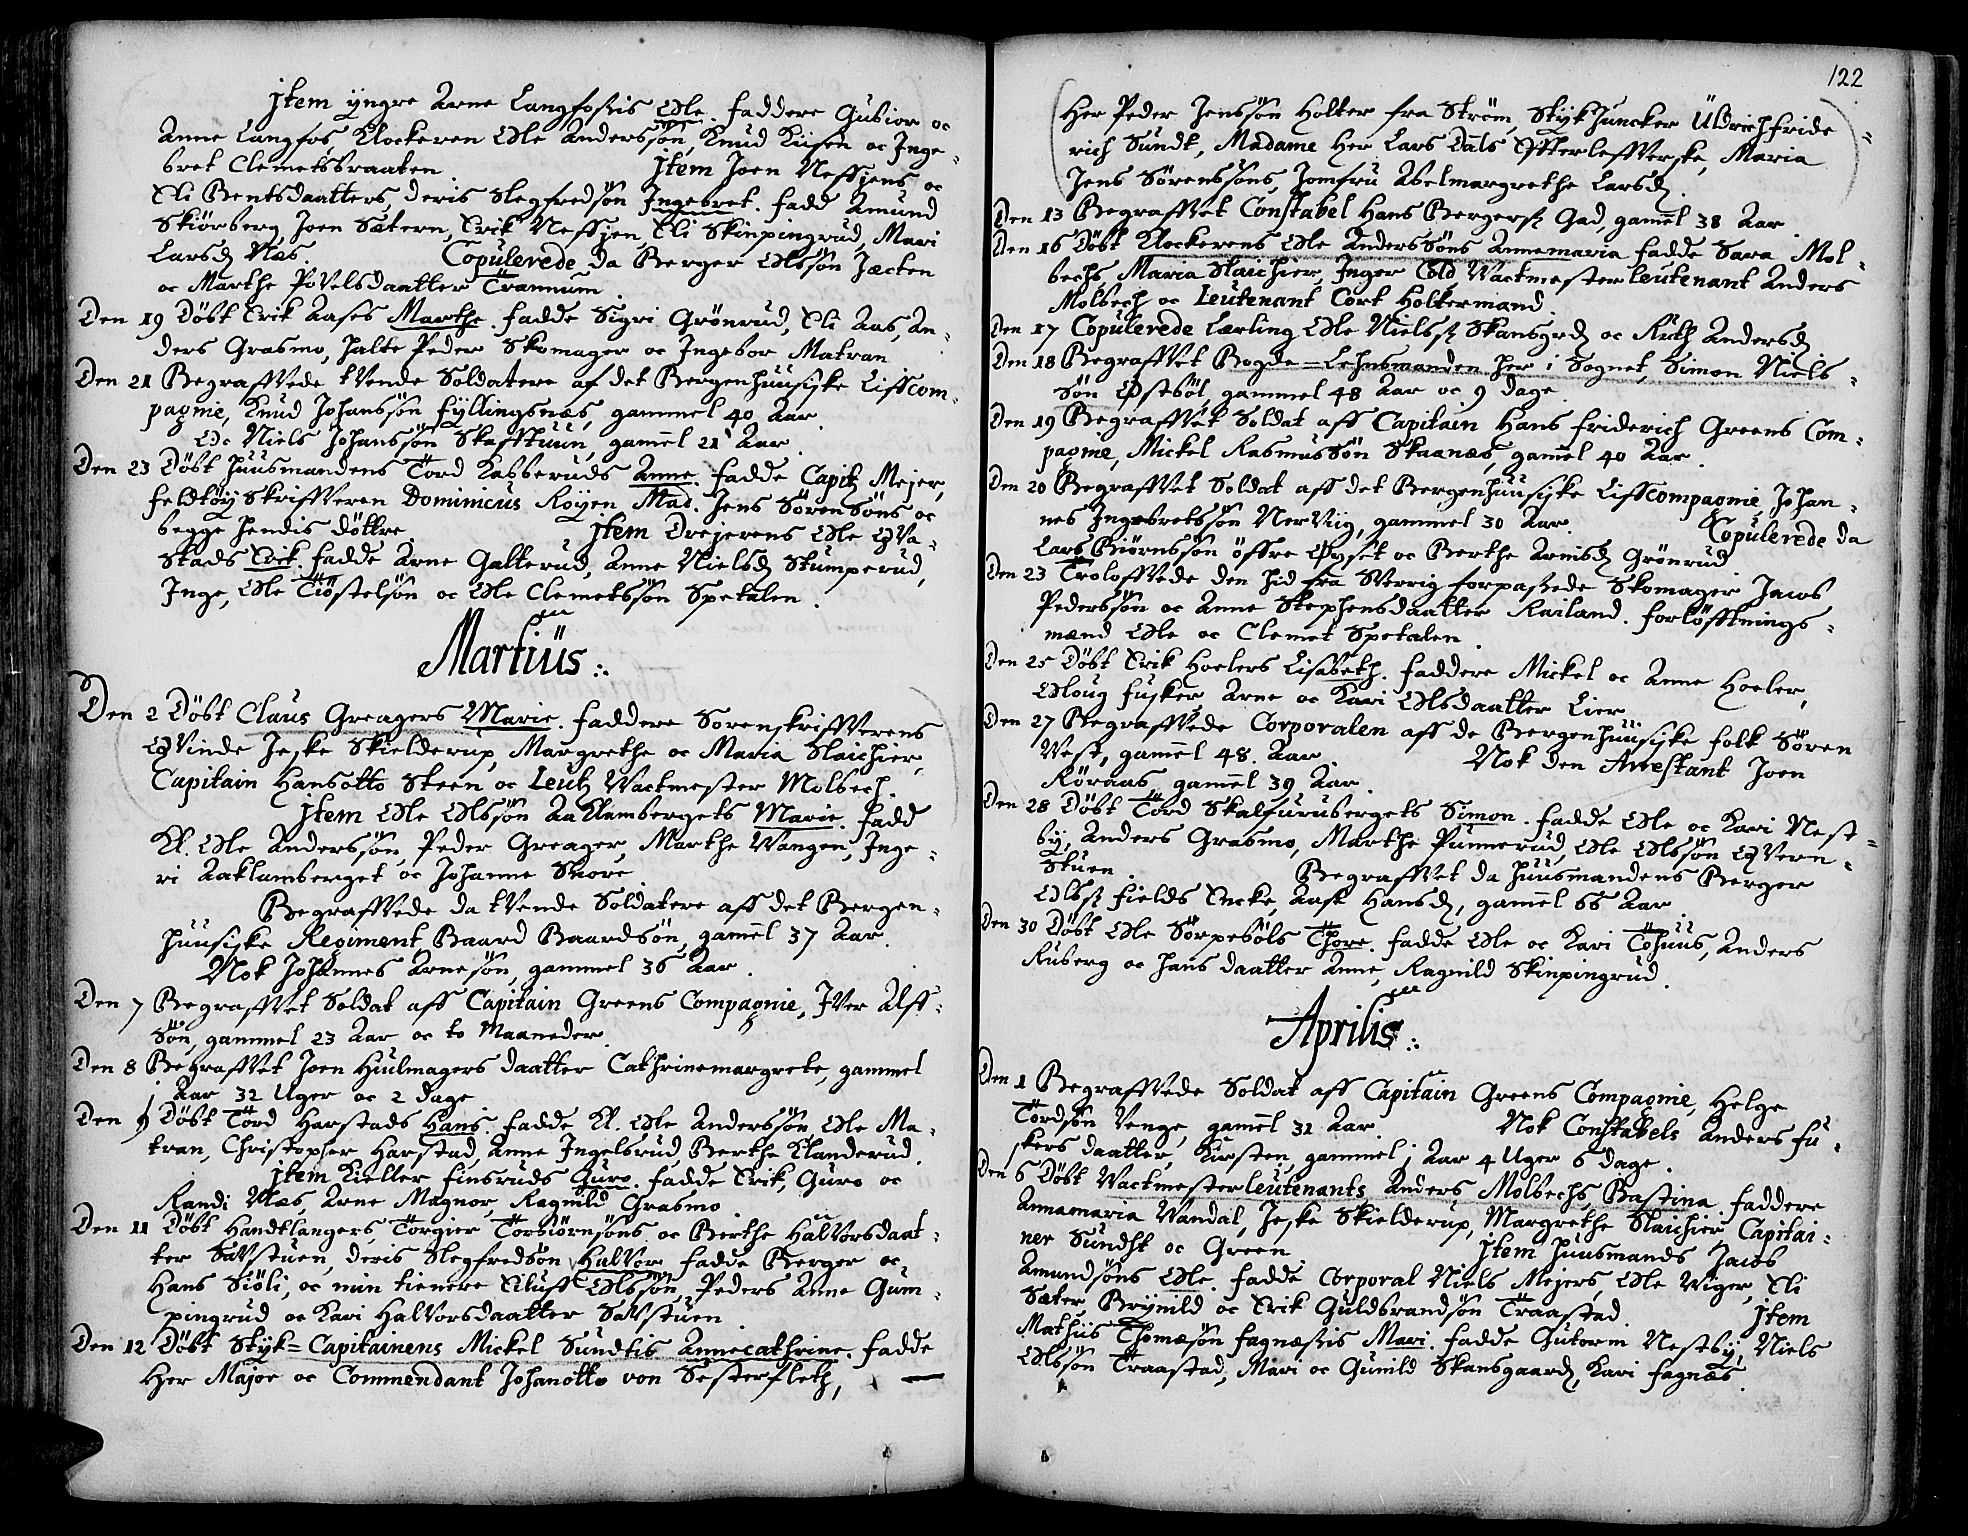 Jtem yngre Arne Langfossis Ole. faddere Gubior oc
Anne Langfos, Klockeren Ole Anderssön, Knud Kiisen oc Inge-
bret Clemetsbraaten. Jtem Joen Neffsens oc
Eli Bentsdaatters, deris Slegfredsön Ingebret. fadd Amund
Skiörberg, Joen Sætern, Erik Neffsen, Eli Skinpingrud, Mari
Larsd Næs. Copulerede da Berger Olssön Jæcten
oc Marthe Povelsdaatter Trannum.
Den 19 Döbt Erik Aases Marthe. fadde Sigri Grönrud, Eli Aas, An-
ders Grasmo, halte Peder Skomager oc Ingebor Matran
Den 21 Begraffvede tvende Soldatere af det Bergenhuusiske Liffcom-
pagnie, Knud Johanssön fyllingsnæs, gammel 40 Aar.
Oc Niels Johanssön Skafftuun, gam̄el 21 Aar.
Den 23 Döbt huusmandens Tord Kabberuds Anne. fadde Capitz Mejer,
feldtöyskriffveren Dominicus Röyen, Mad. Jens Sörensöns oc
begge hendis döttre. Jtem Drejerens Ole Qva-
stads Erik. fadde Arne Galterud, Anne Nielsd Stumperud,
Inge, Ole Tiöstelsön oc Ole Clemetssön Spetalen.
Martiüs.
Den 2 Döbt Claus Greagers Marie. faddere Sorenskriffverens
Qvinde Jeske Skielderup, Margrethe oc Maria Slaichier,
Capitain Hansotto Steen oc Leutz Vactmester Molbech.
Jtem Ole Olssön Aaklambergets Marie. fadd
Kl. Ole Anderssön, Peder Greager, Marthe Vangen, Inge-
ri Aaklamberget oc Johanne Skore
Begraffvede da tvende Soldatere aff det Bergen-
huusiske Regiment, Baard Baardsön, gam̄el 37 Aar.
Nok Johannes Arnesön, gammel 36 Aar.
Den 7 Begraffvet Soldat aff Capitain Greens Compagnie, Iver Alff-
sön, gammel 23 Aar oc to Maaneder.
Den 8 Begraffvet Joen Hiulmagers daatter Cathrinemargrete, gammel
j Aar 32 Uger oc 2 dage
Den 9 Döbt Tord Harstads Hans. fadde Kl. Ole Anderssön, Ole Ma-
tran, Christopher Harstad, Anne Ingelsrud, Berthe Klanderud.
Jtem Kieller Finsruds Guro. fadde Erik, Guro oc
Randi Næs, Arne Magnor, Ragnild Grasmo.
Den 11 Döbt Handtlangers Torgier Torbiörnsöns oc Berthe Halvorsdaat-
ter Savstuen, deris Slegfredsön Halvor. fadde Berger oc
Hans Siöli, oc min tienere Eiluff Olssön, Peders Anne Gum-
pingrud oc Kari Halvorsdaatter Savstuen.
Den 12 Döbt Styk-Capitainens Mickel Sundtis Annecathrine. fadde
Her Major oc Commendant Johanotto von Sesterfleth,
122
Her Peder Jenssön Holter fra Ström, Stykjuncker Uldrichfride-
rich Sundt, Madame Her Lars Dals Effterleffverske, Maria
Jens Sörenssöns, Jomfru Abelmargrethe Larsd.
Den 13 Begraffvet Constabel Hans Bergersz Gad, gam̄el 38 Aar
Den 16 Döbt Klockerens Ole Anderssöns Annemaria. fadde Sara Mol-
bechs, Maria Slaichier, Inger Cold, Vactmesterleutenant Anders
Molbech oc Leutenant Cort Holtermand.
Den 17 Copulerede Lærling Ole Nielsz Skansgrd oc Ruth Andersd
Den 18 Begraffvet Bogde-Lehnsmanden her i Sognet, Simon Niels-
sön Östeböl, gammel 48 Aar oc 9 dage.
Den 19 Begraffvet Soldat aff Capitain Hans Friderich Greens Com-
pagnie, Mickel Rasmussön Skaanæs, gam̄el 40 Aar.
Den 20 Begraffvet Soldat aff det Bergenhuusiske Liffcompagnie, Johan-
nes Ingebretssön Nerviig, gammel 30 Aar. Copulerede da
Lars Biörnssön öffre Öyset oc Berthe Arnisd Grönrud
Den 23 Troloffvede den hid fra Sverrig forpassede Skomager Jacob
Pederssön oc Anne Stephensdaatter Kailand. forlöfftnings-
mænd Ole oc Clemet Spetalen.
Den 25 Döbt Erik Hoelers Lisabeth. faddere Mickel oc Anne Hoeler,
Oloug fusker, Arne oc Kari Olsdaatter Lier
Den 27 Begraffvede Corporalen aff de Bergenhuusiske folk Sören
West, gam̄el 48. Aar. Nok den Arrestant Joen
Röraas gam̄el 39 Aar.
Den 28 Döbt Tord Skalfurubergets Simon. fadde Ole oc Kari Nest-
by, Anders Grasmo, Marthe Punnerud, Ole Olssön Qvern-
stuen. Begraffvet da huusmandens Berger
Olssz fields Encke, Aase Hansd, gam̄el 66 Aar.
Den 30 Döbt Ole Sörpeböls Thore. fadde Ole oc Kari Tohuus, Anders
Ruberg oc hans daatter Anne, Ragnild Skinpingrud.
Aprilis.
Den 1 Begraffvede Soldat aff Capitain Greens Compagnie, Helge
Tordsön Venge, gam̄el 31 Aar. Nok Constabels Anders fu-
skers daatter, Kirsten, gammel j Aar 4 Uger 6 dage.
Den 6 Döbt Vactmesterleutenants Anders Molbechs Bastina. faddere
Annamaria Vandal, Jeske Skielderup, Margrethe Slaichier, Capitai-
ner Sundtt oc Green Jtem huusmands Jacob
Amundsöns Ole. fadde Corporal Niels Mejers, Ole Viger, Eli
Sæter, Brynild oc Erik Guldbrandsön Traastad. Jtem
Mathiis Thomæsön Fagnæssis Mari. fadde Gutorm Nestby, Niels
Olssön Traastad, Mari oc Gunild Skansgaard, Kari Fagnæs.